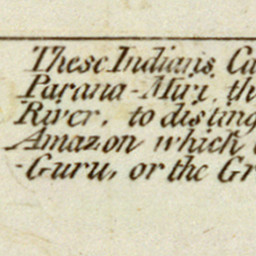 These Indians Ca
Parana-Miri, th
River, to disting
Amazon which
-Guru, or the Gr